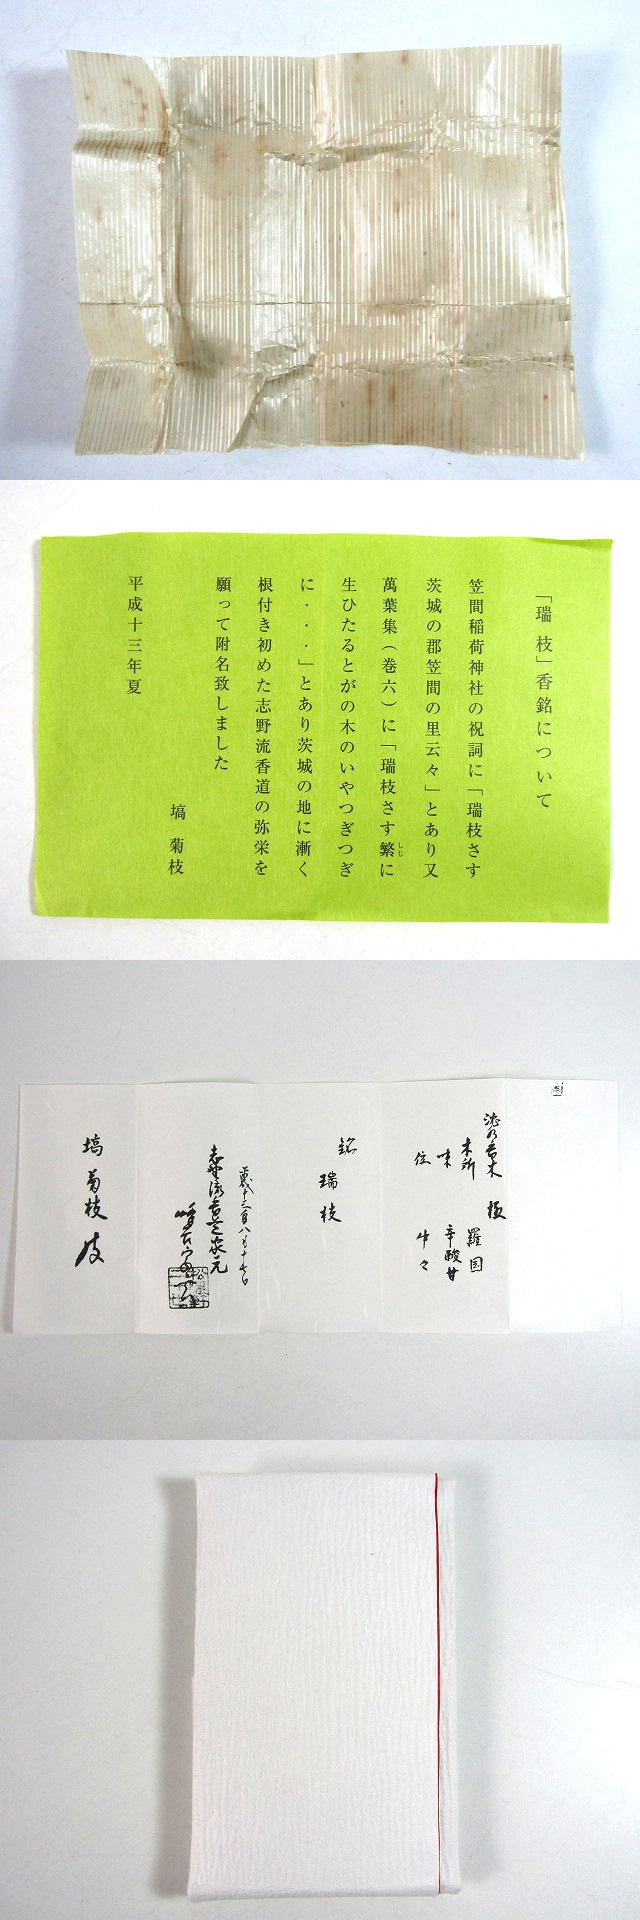 「瑞 枝」香銘について
笠間稲荷神社の祝詞に「瑞枝さす
茨城の郡笠間の里云々」とあり又
萬葉集（巻六）に「瑞枝さす繁に
しじ
生ひたるとがの木のいやつぎつぎ
に・・・」とあり茨城の地に漸く
根付き初めた志野流香道の弥栄を
願って附名致しました
平成十三年夏
塙 菊枝
極
木所 羅国
味 辛酸甘
位 中々
銘 瑞枝
平成十三年八月十七日
志野流香道家元
塙 菊枝